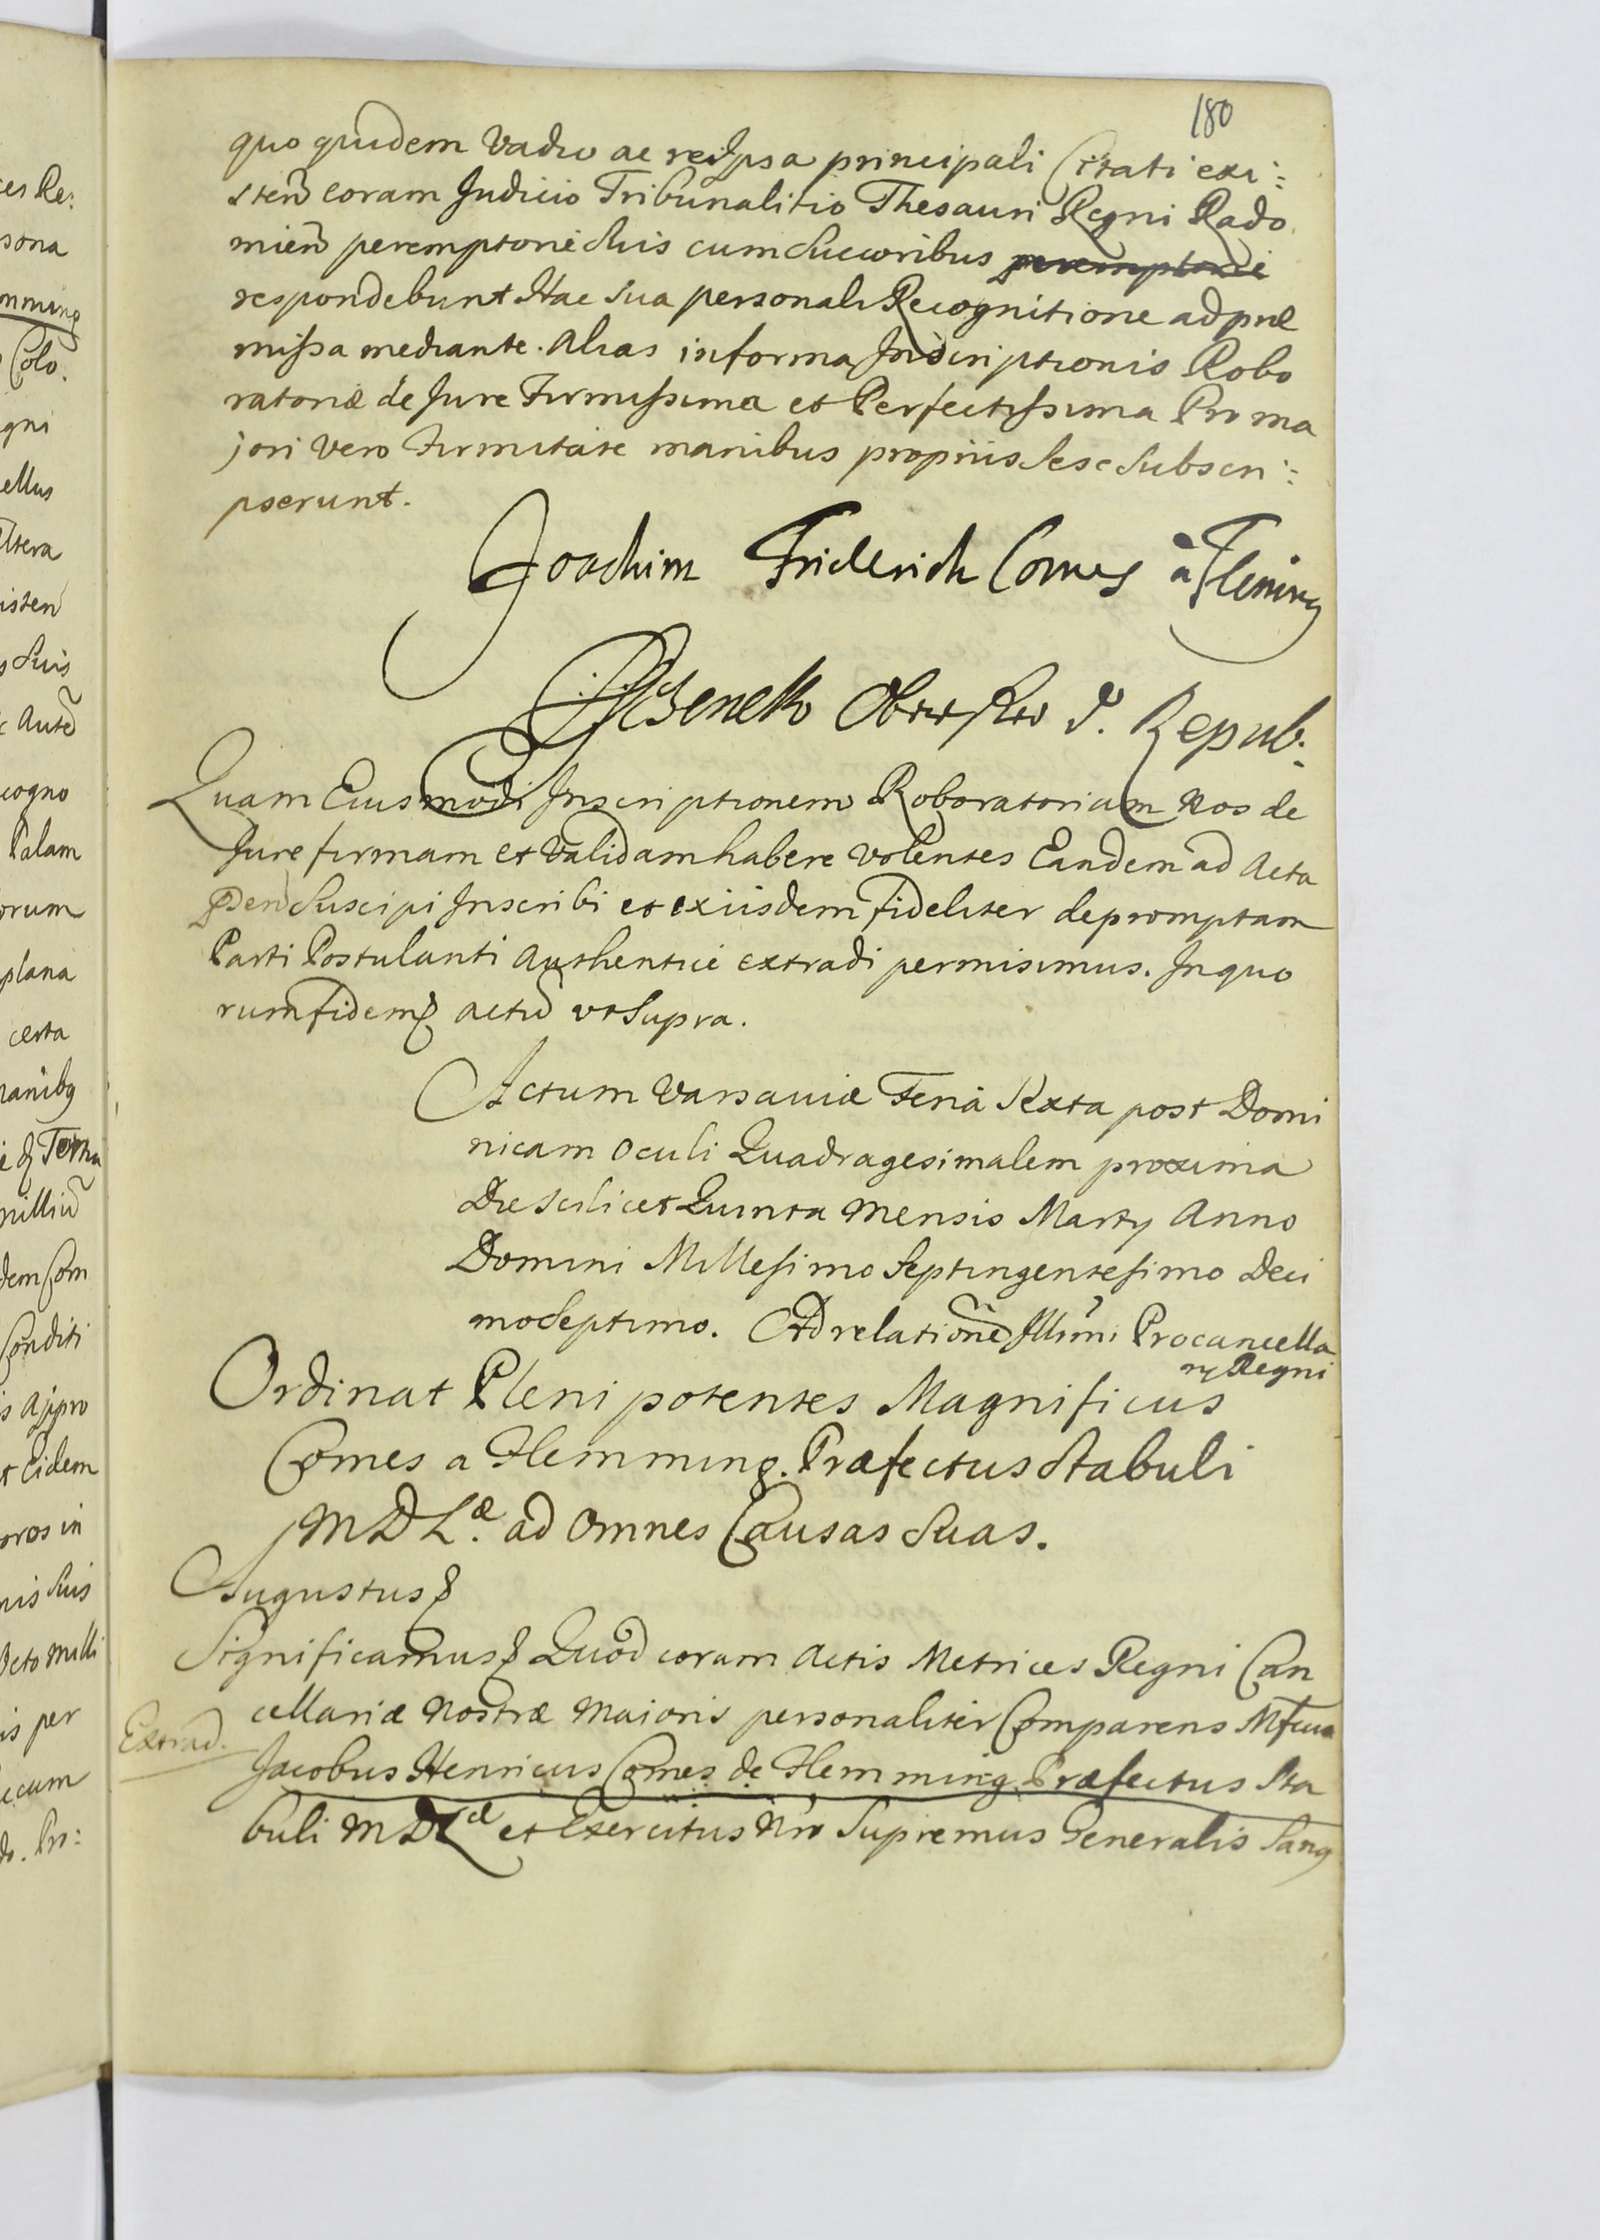 180
quo quidem vadio ac re Ipsa principali Citati exi:
sten coram Judicio Tribunalitio Thesauri Regni Rado
mien peremptorie suis cum Succoribus peremptorie
respondebunt Hac sua personali Recognitione ad præ
missa mediante. Alias in forma Inscriptionis Robo
ratoriæ de Jure Firmissima et Perfectissima Pro ma
jori vero Firmitate manibus propriis sese subscri:
pserunt.
Joachim Friderich Comes à Fleming
Obrister d. Repub:
Quam Eiusmodi Inscriptionem Roboratoriam nos de
Jure firmam et validam habere volentes Eandem ad Acta
pnden Suscipi Inscribi et ex iisdem fideliter depromptam
Parti Postulanti Authenticè extradi permisimus. In quo
rum fidem actu ut supra.
Actum Varsaviæ Feria Sexta post Domi
nicam Oculi Quadragesimalem proxima
Die scilicet Quinta Mensis Martij Anno
Domini Millesimo Septingentesimo Deci
moseptimo. Ad relatione Illmi Procancella
rij Regni
Ordinat Plenipotentes Magnificus
Comes a Flemming. Præfectus Stabuli
MDLæ. ad omnes Causas suas.
Augustus
Significamus Quod coram Actis Metrices Regni Can
cellariæ Nostræ Maioris personaliter Comparens Mfcus
Extrad.
Jacobus Henricus Comes de Flemming Præfectus Sta
buli MDLæ et Exercitus Nri Supremus Generalis sanq